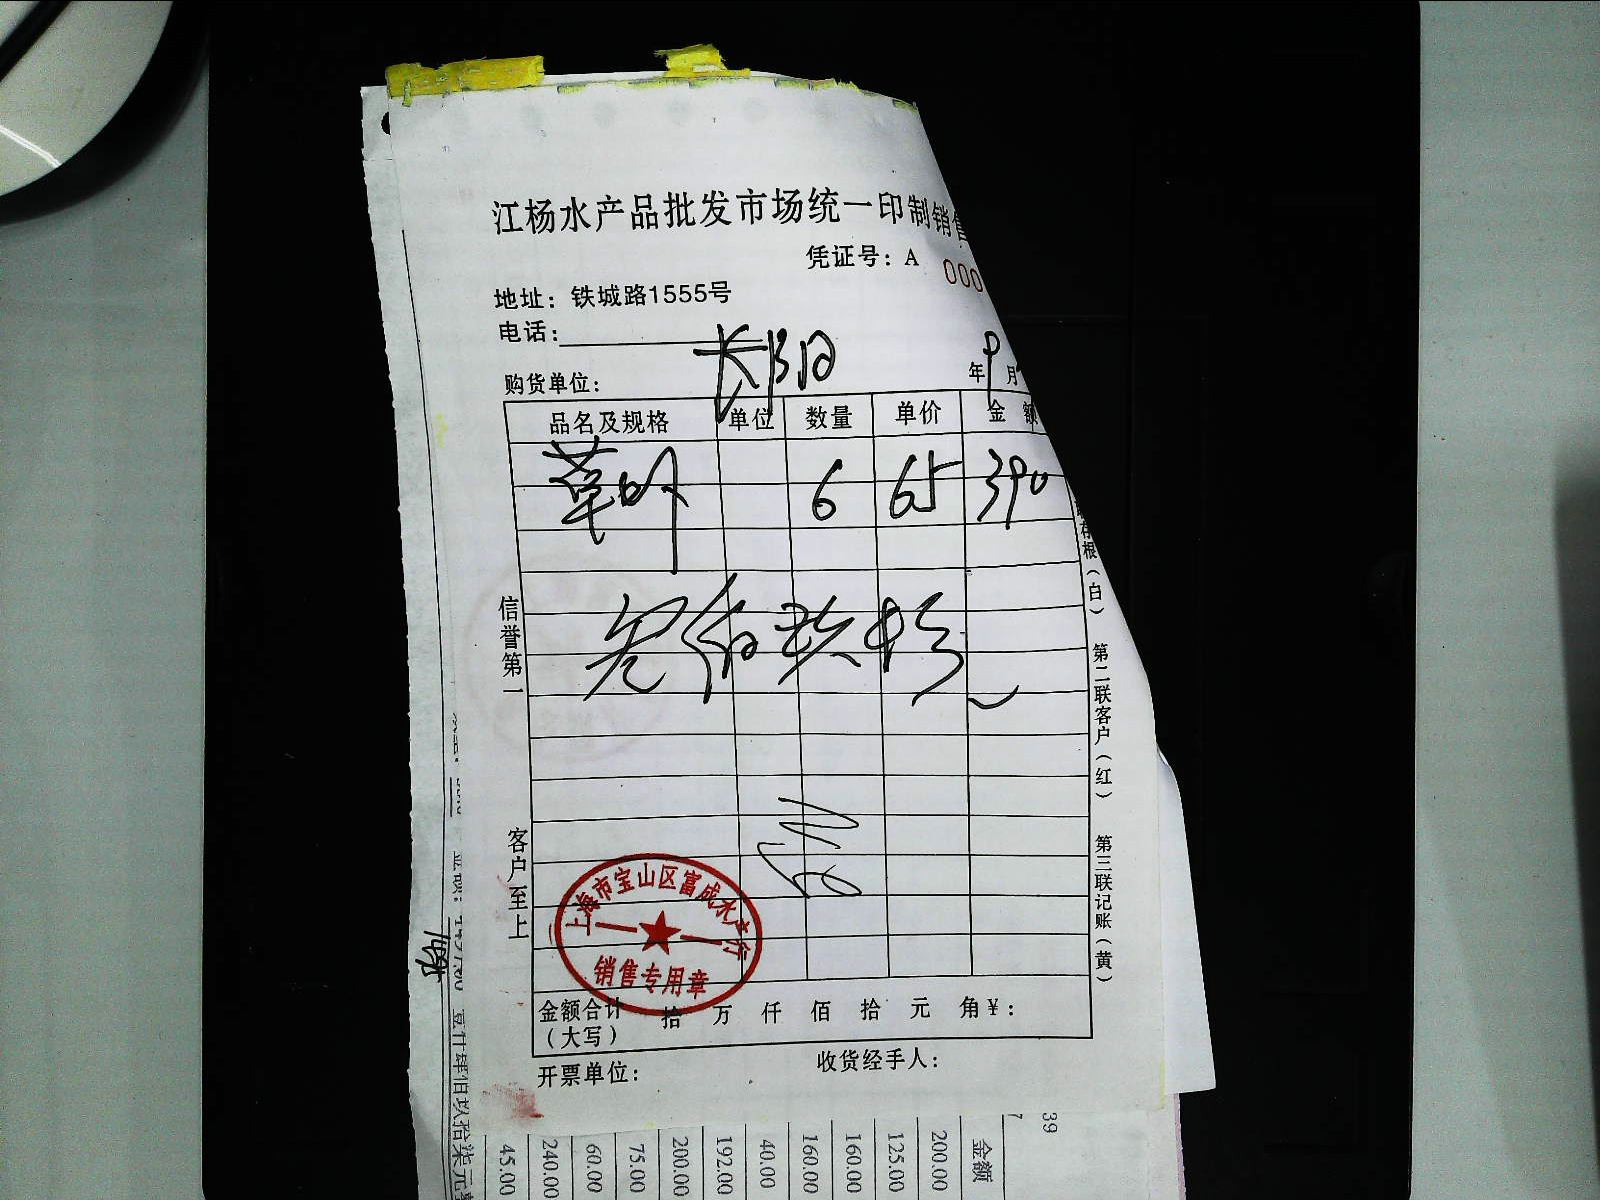 江杨水产品批发市场统一印制销售
凭证号：A 000
地址：铁城路1555号
电话：
购货单位：
年 9 月
品名及规格 单位 数量 单价 金额
草 6 65 390
叁佰玖拾元
信誉第一
客户至上
存根（白）
第二联客户（红）
第三联记账（黄）
上海市宝山区富成水产行
销售专用章
金额合计（大写） 拾 万 仟 佰 拾 元 角 ¥：
开票单位： 收货经手人：
壹仟肆佰玖拾柒元
39
金额
200.00
125.00
160.00
160.00
40.00
192.00
200.00
75.00
60.00
240.00
45.00